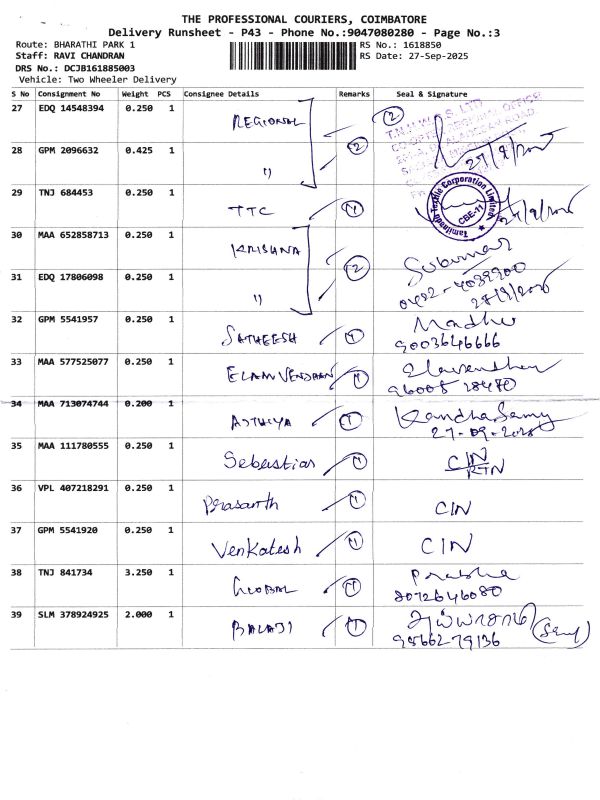 THE PROFESSIONAL COURIERS, COIMBATORE
Delivery Runsheet - P43 - Phone No.:9047080280 - Page No.:3
Route: BHARATHI PARK 1 RS No.: 1618850
Staff: RAVI CHANDRAN RS Date: 27-Sep-2025
DRS No.: DCJB161885003
Vehicle: Two Wheeler Delivery
S No Consignment No Weight PCS Consignee Details Remarks Seal & Signature
27 EDQ 14548394 0.250 1 REGIONAL 2
28 GPM 2096632 0.425 1 11 2 27/9/2025
29 TNJ 684453 0.250 1 TTC 1 Tamilnadu Textile Corporation Limited CBE-11 27/9/2025
30 MAA 652858713 0.250 1 KRISHNA 2 Sukumar
31 EDQ 17806098 0.250 1 11 27/9/2025
32 GPM 5541957 0.250 1 SATHEESH 1 Madhu
9003646666
33 MAA 577525077 0.250 1 ELAMVENDHAN 1 Elavendhan
96008 28470
34 MAA 713074744 0.200 1 1 KandhaSamy
27-09-2025
35 MAA 111780555 0.250 1 Sebastian 1 CIN
RTN
36 VPL 407218291 0.250 1 Prasanth 1 CIN
37 GPM 5541920 0.250 1 Venkatesh 1 CIN
38 TNJ 841734 3.250 1 GLOBAL 1 Prabha
8072646080
39 SLM 378924925 2.000 1 BALAJI 1
9566279136